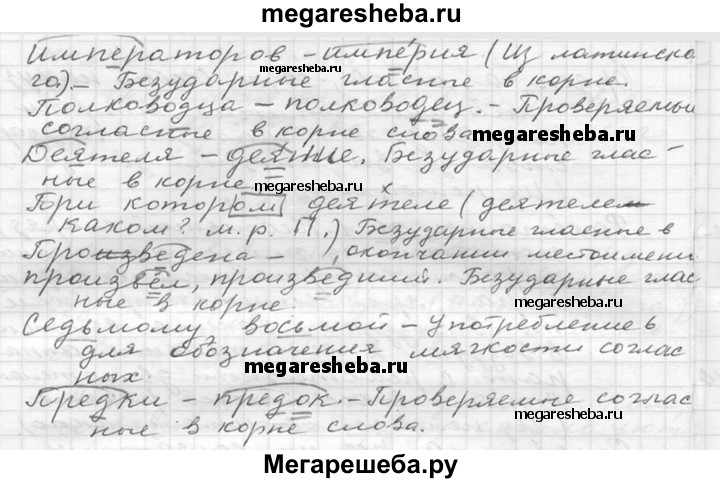 megaresheba.ru
Императоров – империя (Из латинско
го). – Безударные гласные в корне.
megaresheba.ru
Полководца – полководец. – Проверяемые
согласные в корне слова.
megaresheba.ru
Деятеля – деяние. Безударные глас-
ные в корне.
megaresheba.ru
При котором деятеле (деятелем
каком? м. р. П.) Безударные гласные в
Произведена – , окончании местоимени
произвёл, произведший. Безударные глас
ные в корне.
megaresheba.ru
Седьмому восьмой – Употребление ь
для обозначения мягкости соглас
ных.
megaresheba.ru
Предки – предок. – Проверяемые соглас
ные в корне слова.
megaresheba.ru
Мегарешеба.ру